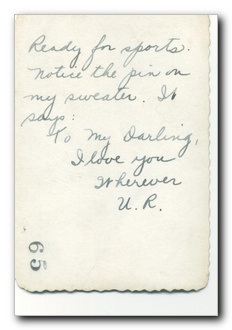 Ready for sports.
Notice the pin on
my sweater. It
says:
To My Darling,
I love you
Wherever
U. R.
65